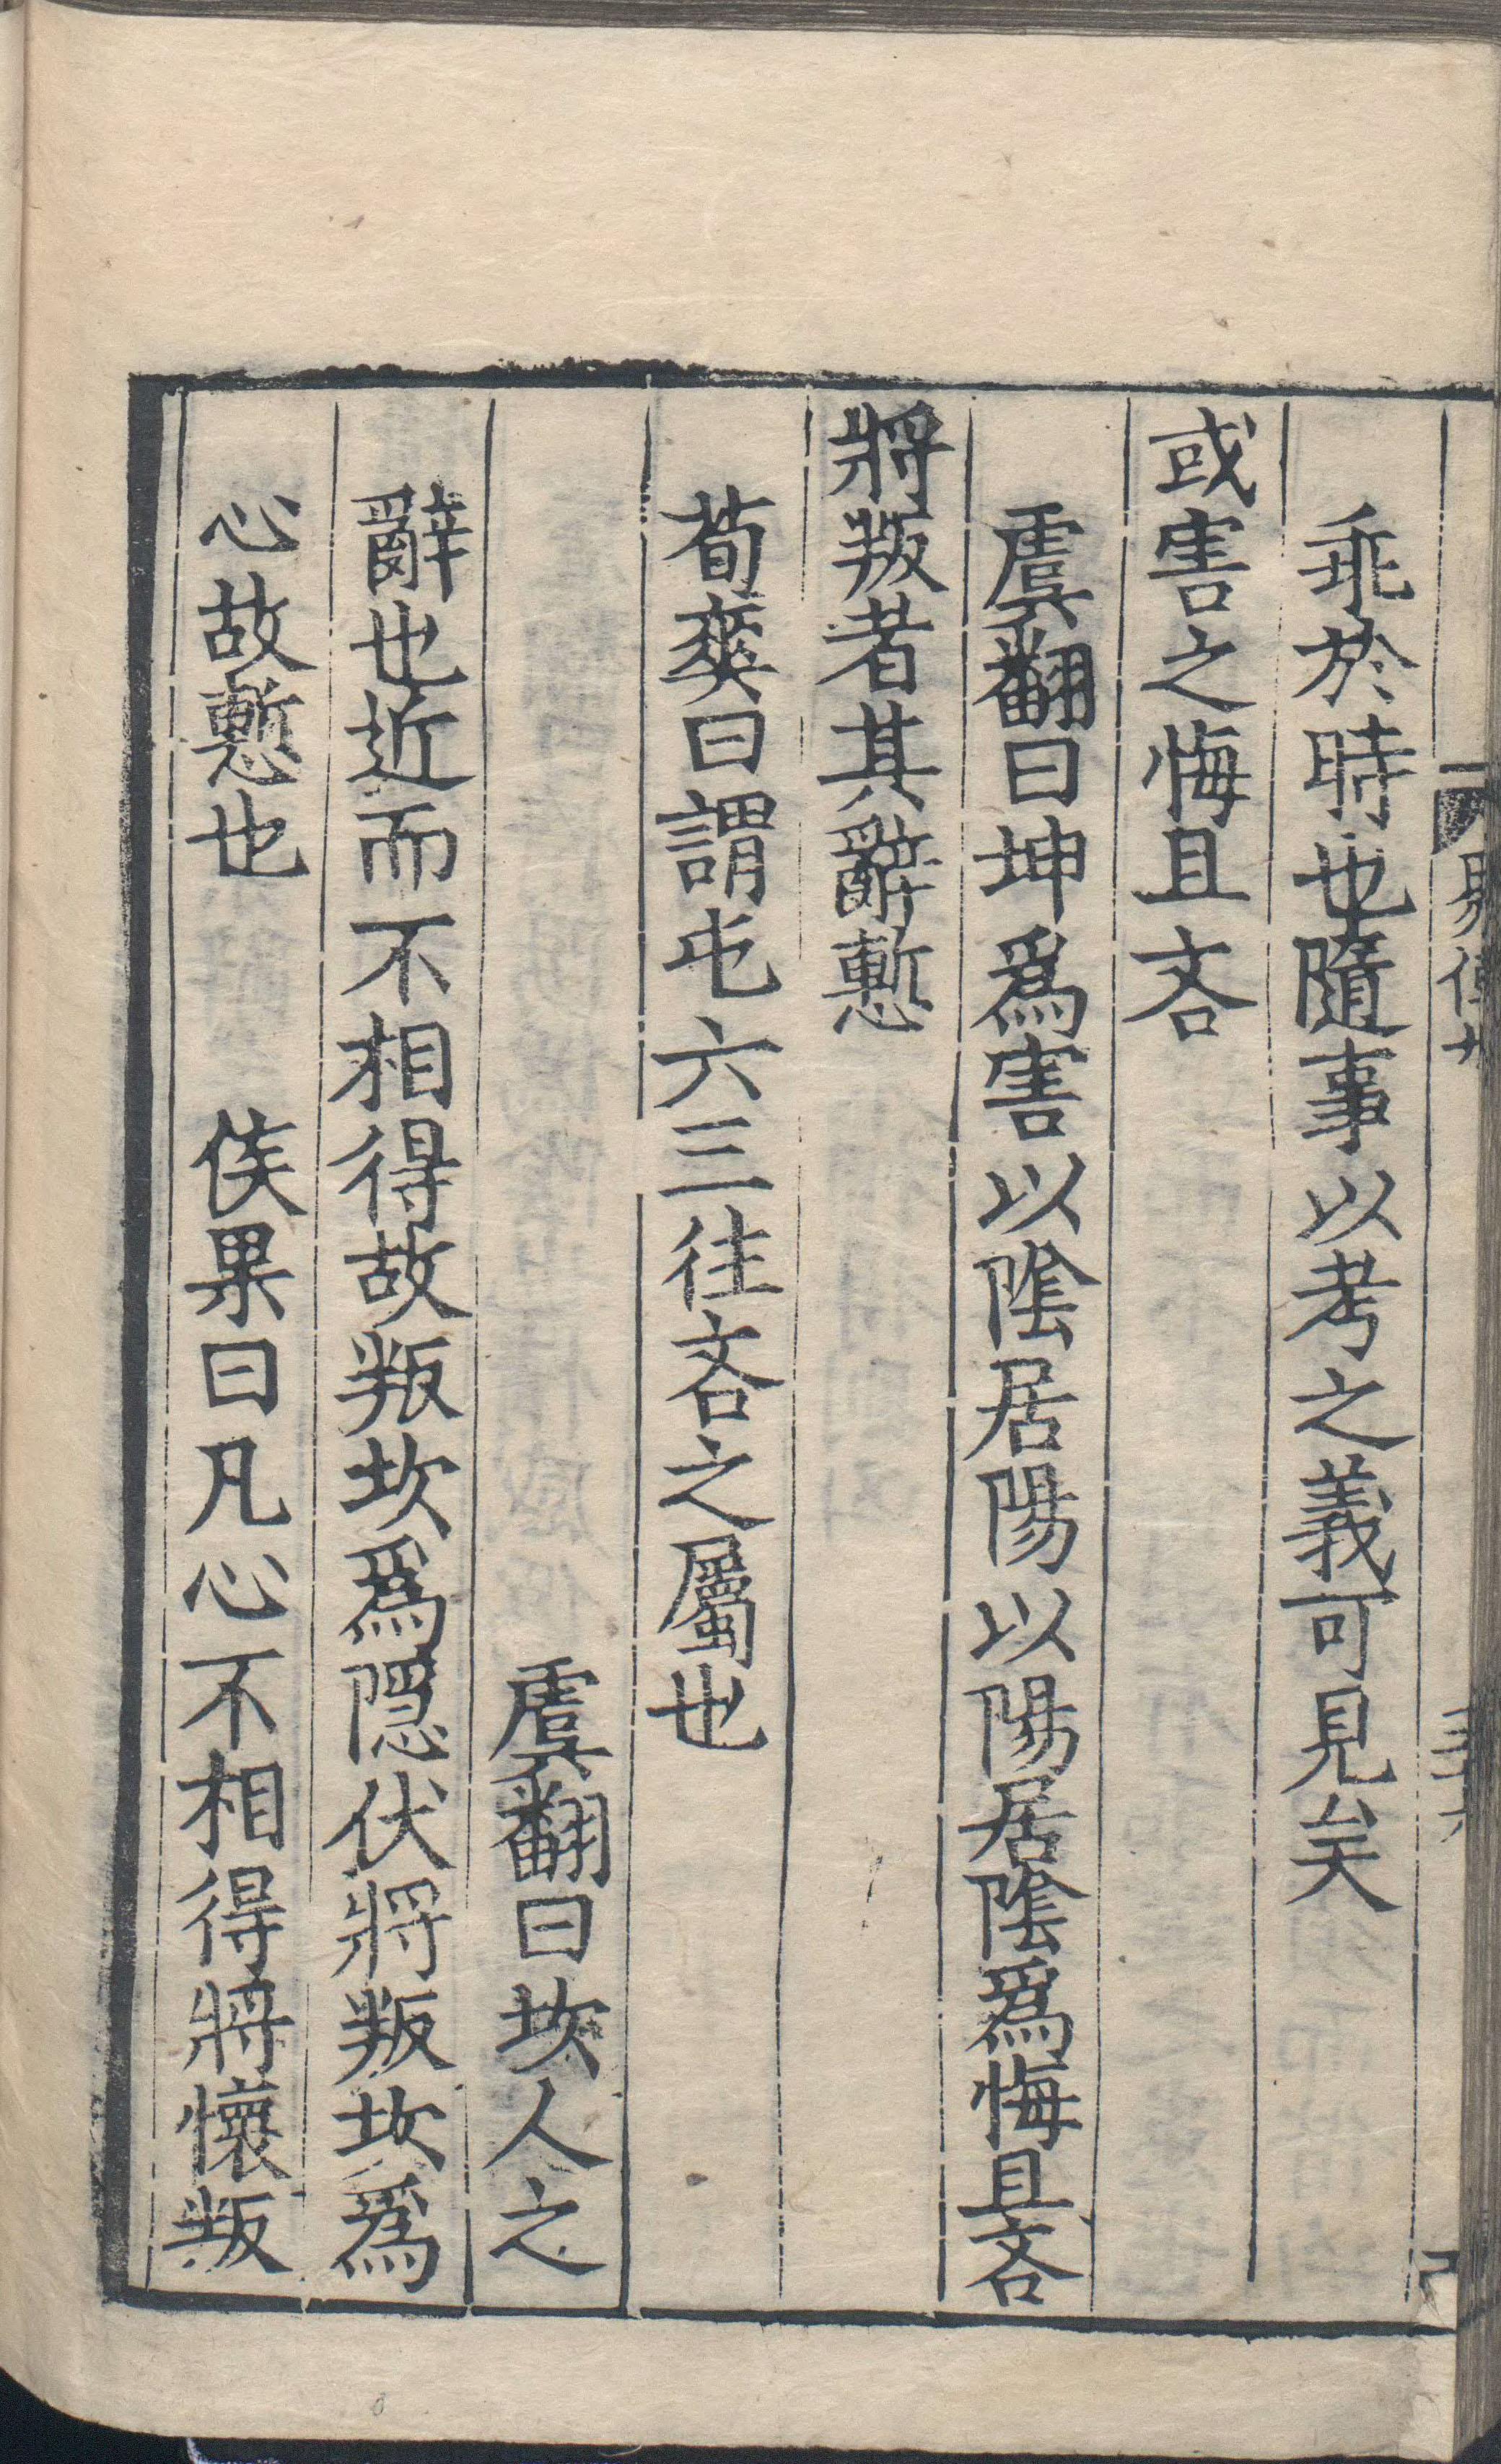 乖於時也隨事以考之義可見矣
或害之悔且吝
虞翻曰坤爲害以隂居陽以陽居隂爲悔且吝
將叛者其辭慙
荀爽曰謂屯六三往吝之屬也
虞翻曰坎人之
辭也近而不相得故叛坎爲隱伏將叛坎爲
心故慙也　侯果曰凡心不相得將懷叛